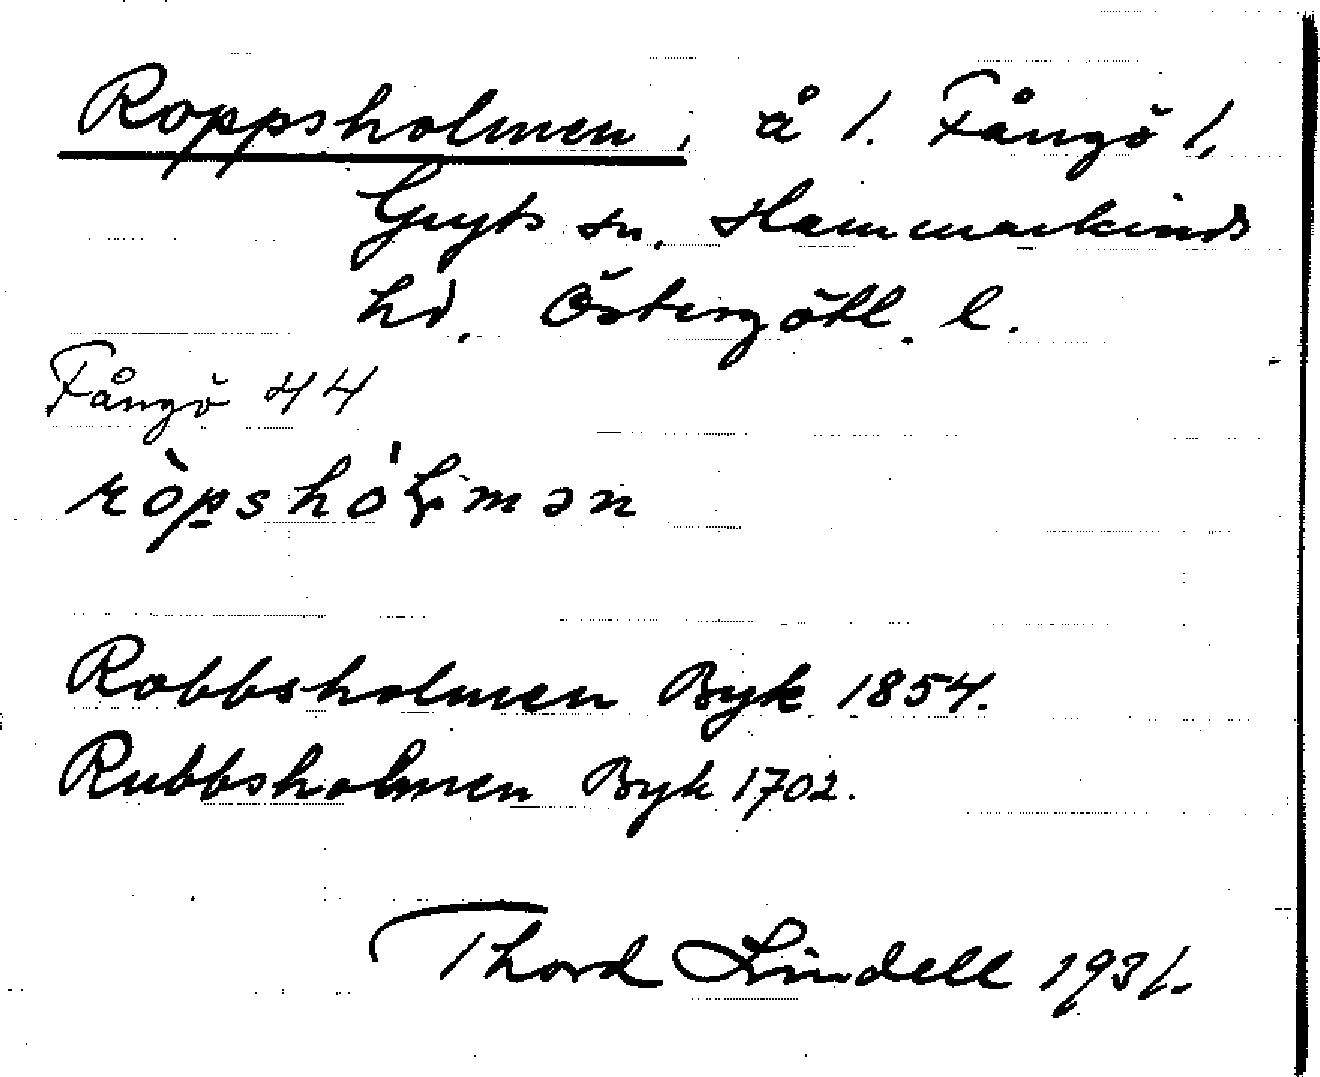 Roppsholmen, å 1. Fångö 1,
Gryts sn. Hammarkinds
hd. Östergötl. l.
Fångö 44
ròpshól̥mən
Robbsholmen Byk 1854.
Rubbsholmen Byk 1702.
Thord Lindell 1931.